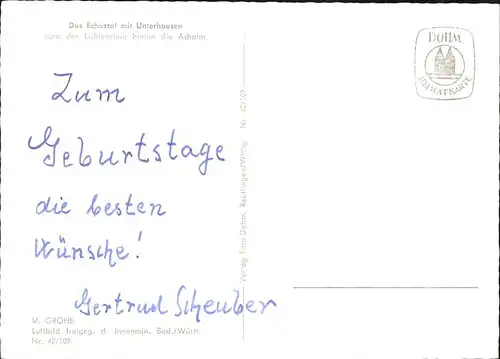 Das Echaztal mit Unterhausen
vorn der Lichtenstein hinten die Achalm
DOHM
HEIMATKARTE
Zum
Geburtstage
die besten
Wünsche!
Gertrud Scheuber
Verlag Foto Dohm, Reutlingen/Württbg. Nr. 42/109
M. GROHE
Luftbild freigeg. d. Innenmin. Bad./Württ.
Nr. 42/109